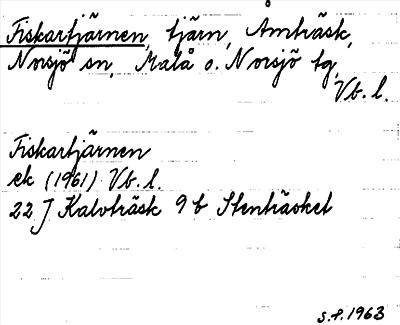 Fiskartjärnen, tjärn, Åmträsk,
Norsjö sn, Malå o. Norsjö tg,
Vb. l.
Fiskartjärnen
ek (1961) Vb. l.
22 J Kalvträsk 9 b Stenträsket
S.P. 1963